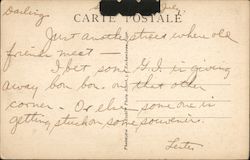 Darling
CARTE POSTALE
Just another street where old
friends meet —
I bet some G.I. is giving
away bon bon. on that other
corner. Or else some one is
getting stuck on some souvenirs.
Lester